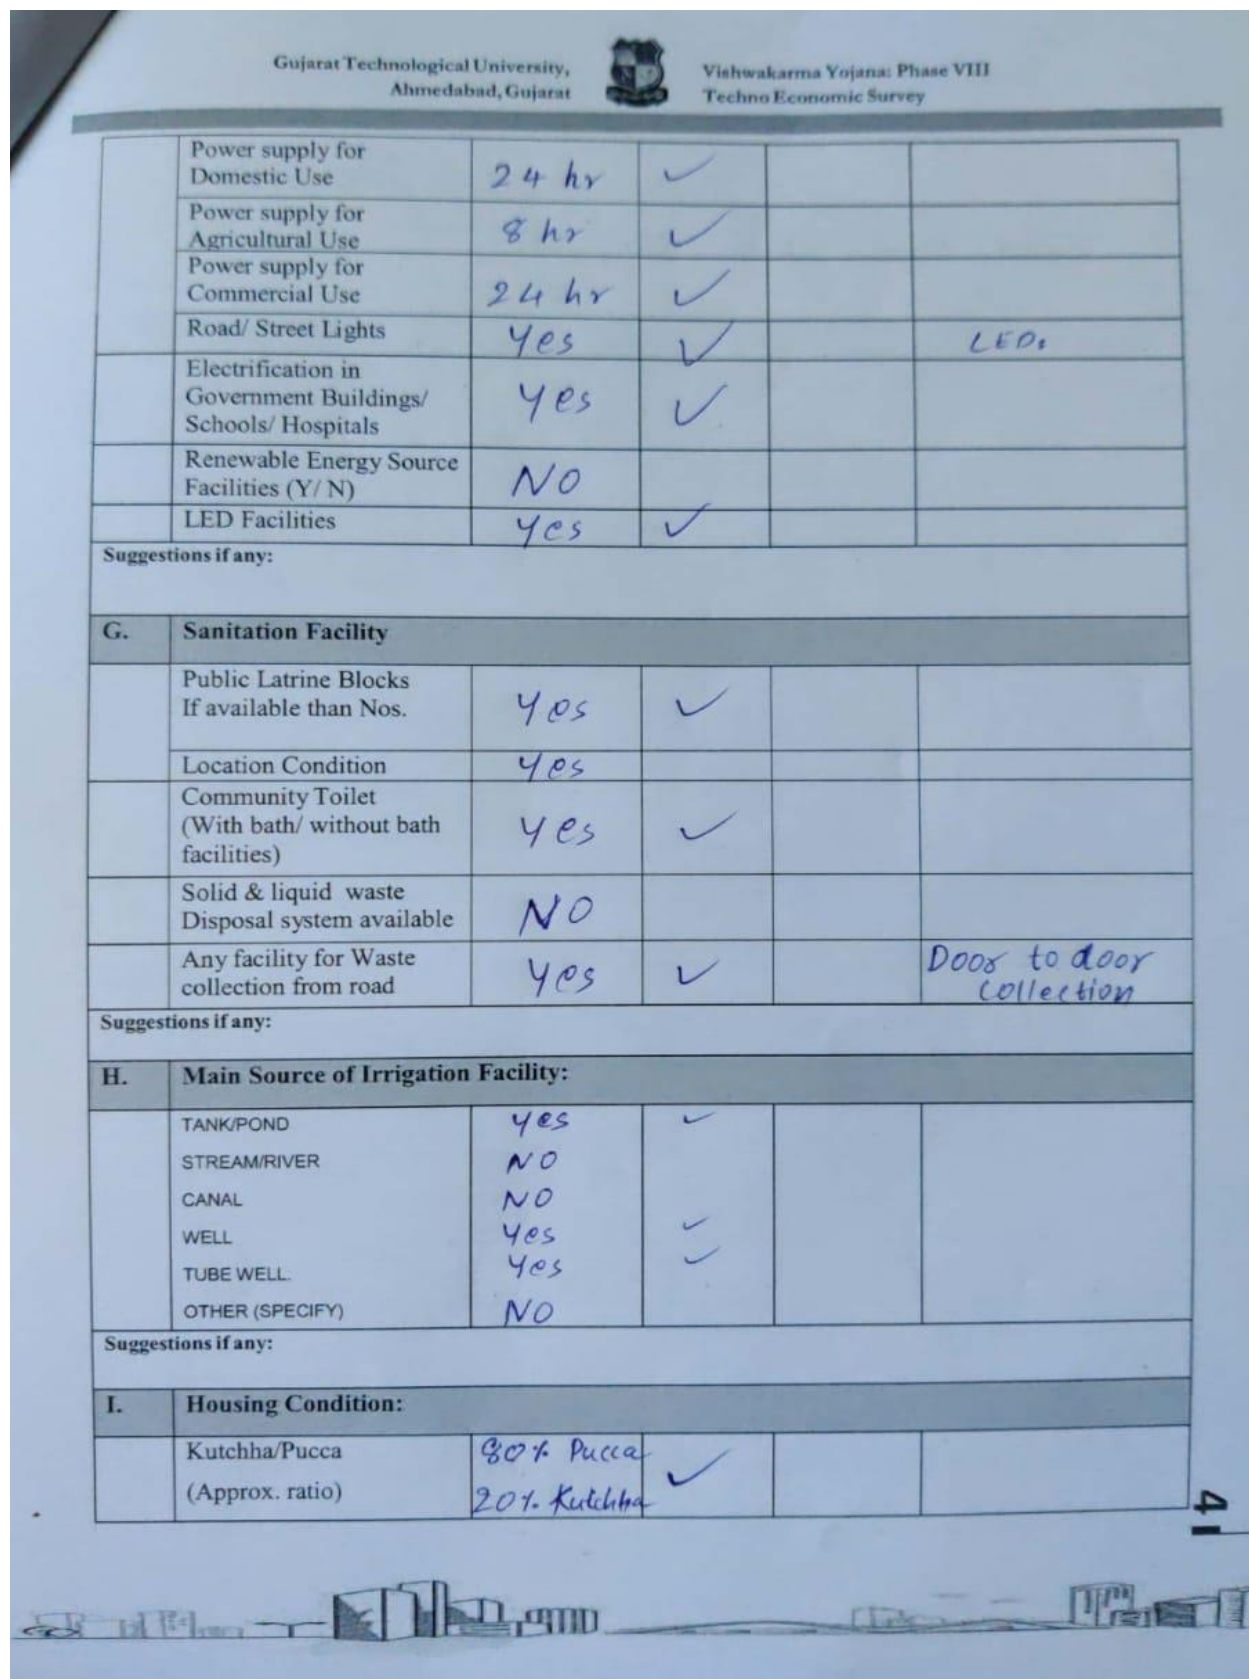 Gujarat Technological University,
Ahmedabad, Gujarat
Vishwakarma Yojana: Phase VIII
Techno Economic Survey
Power supply for
Domestic Use 24 hr ✓
Power supply for
Agricultural Use 8 hr ✓
Power supply for
Commercial Use 24 hr ✓
Road/ Street Lights Yes ✓ LED.
Electrification in
Government Buildings/ Yes ✓
Schools/ Hospitals
Renewable Energy Source
Facilities (Y/ N) NO
LED Facilities Yes ✓
Suggestions if any:
G. Sanitation Facility
Public Latrine Blocks
If available than Nos. Yes ✓
Location Condition Yes
Community Toilet
(With bath/ without bath Yes ✓
facilities)
Solid & liquid waste
Disposal system available NO
Any facility for Waste Door to door
collection from road Yes ✓ Collection
Suggestions if any:
H. Main Source of Irrigation Facility:
TANK/POND Yes ✓
STREAM/RIVER NO
CANAL NO
WELL Yes ✓
TUBE WELL. Yes ✓
OTHER (SPECIFY) NO
Suggestions if any:
I. Housing Condition:
Kutchha/Pucca 80% Pucca ✓
(Approx. ratio) 20% Kutchha
41